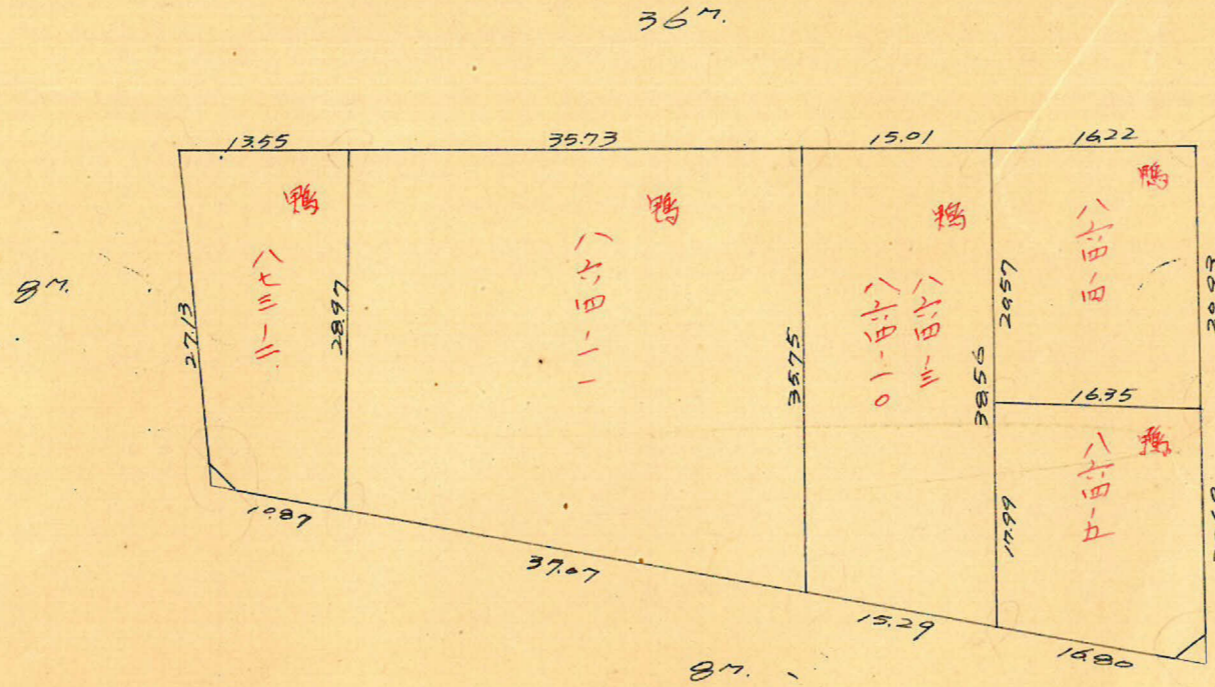 36m.
13.55
35.73
15.01
16.22
8m.
27.13
鴨
八七三ー二
28.97
鴨
八六四ー一一
35.75
鴨
八六四ー三
八六四ー一〇
38.56
20.57
鴨
八六四ー四
16.35
17.99
鴨
八六四ー五
10.87
37.07
15.29
16.80
8m.